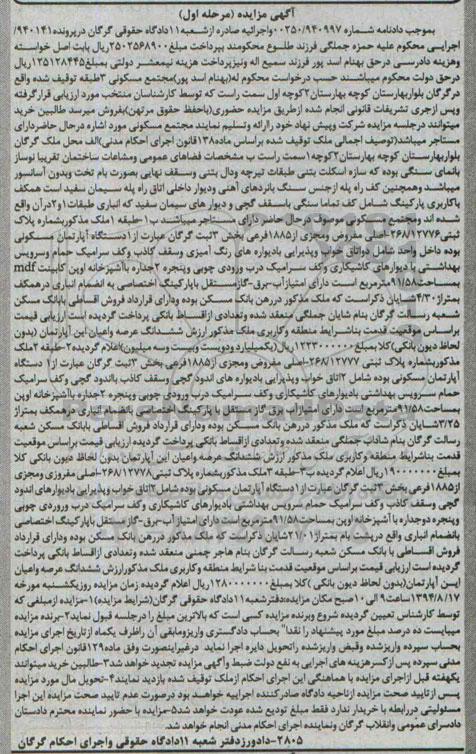 آگهی مزایده (مرحله اول)
بموجب دادنامه شماره ۰۰۲۵۰/۹۴۰۹۹۷ واجرائیه صادره ازشعبه۱۱دادگاه حقوقی گرگان درپرونده۹۴۰۱۴۱/
اجرایی محکوم علیه حمزه جملگی فرزند طلوع محکومند بپرداخت مبلغ۲۵۰۲۵۶۸۹۰۰ریال بابت اصل خواسته
وهزینه دادرسی درحق بهنام اسد پور فرزند سمیع اله ونیزپرداخت هزینه نیمعشر دولتی بمبلغ۱۲۵۱۲۸۴۴۵ریال
درحق دولت محکوم میباشند حسب درخواست محکوم له(بهنام اسد پور)مجتمع مسکونی ۳طبقه توقیف شده واقع
درگرگان بلواربهارستان کوچه بهارستان۲کوچه اول سمت راست که توسط کارشناسان منتخب مورد ارزیابی قرارگرفته
وپس ازجری تشریفات قانونی انجام شده ازطریق مزایده حضوری(باحفظ حقوق مرتهن)بفروش میرسد طالبین خرید
میتوانند درجلسه مزایده شرکت وپیش نهاد خود راارائه وتسلیم نمایند مجتمع مسکونی مورد اشاره درحال حاضردارای
مستاجر میباشد(توصیف اجمالی ملک توقیف شده براساس ماده۱۳۸قانون اجرای احکام مدنی)الف محل ملک گرگان
بلواربهارستان کوچه بهارستان۲کوچه۱سمت راست ب مشخصات فضاهای عمومی ومشاعات ساختمان تقریبا نوساز
بانمای سنگی بوده که سازه اسکلت بتنی طبقات تیرچه ودال بتنی وسقف نهایی بصورت بام تخت وبدون آسانسور
میباشد وهمچنین کف راه پله ازجنس سنگ بانردهای آهنی ودیوار داخلی اتاق راه پله سیمان سفید است همکف
باکاربری پارکینگ شامل کف تماما سنگی باسقف گچی و دیوار های سیمان سفید که انباری طبقات۱و۲درآن واقع
شده اند ومجتمع مسکونی موصوف درحال حاضر دارای مستاجر میباشند ب ۱-طبقه ۱ملک مذکوربشماره پلاک
ثبتی۲۶۸/۱۲۷۷۶-اصلی مفروض ومجزی از۱۸۸۵فرعی بخش ۳ثبت گرگان عبارت از۱دستگاه آپارتمان مسکونی
بوده داخل واحد شامل دواتاق خواب وپذیرایی بادیواره های رنگ آمیزی وسقف کاذب وکف سرامیک حمام وسرویس
بهداشتی بادیوارهای کاشیکاری وکف سرامیک درب ورودی چوبی وپنجره ۲جداره باآشپزخانه اوپن کابینت mdf
بمساحت۹۱/۵۸مترمربع است دارای امتیازآب-برق-گازمستقل باپارکینگ اختصاصی به انضمام انباری درهمکف
بمتراژ۴/۳۰شایان ذکراست که ملک مذکور دررهن بانک مسکن بوده ودارای قرارداد فروش اقساطی بابانک مسکن
شعبه رسالت گرگان بنام شایان جملگی منعقد شده وتعدادی ازاقساط بانکی پرداخت گردیده است ارزیابی قیمت
براساس موقعیت قدمت بناشرایط منطقه وکاربری ملک مذکور ارزش ششدانگ عرصه واعیان این آپارتمان (بدون
لحاظ دیون بانکی)کلا بمبلغ۱۲۲۳۰۰۰۰۰۰ریال(یکمیلیارد ودویست وبیست وسه میلیون)اعلام گردیده۲-طبقه ۲ملک
مذکوربشماره پلاک ثبتی ۲۶۸/۱۲۷۷۷-اصلی مفروض ومجزی از۱۸۸۵فرعی بخش ۳ثبت گرگان عبارت از۱ دستگاه
آپارتمان مسکونی بوده شامل ۲اتاق خواب وپذیرایی بادیواره های اندود گچی وسقف کاذب بااندود گچی وکف سرامیک
حمام سرویس بهداشتی بادیوارهای کاشیکاری وکف سرامیک درب ورودی چوبی وپنجره ۲جداره باآشپزخانه اوپن
بمساحت۹۱/۵۸مترمربع است دارای امتیازآب برق گاز مستقل با پارکینگ اختصاصی بانضمام انباری درهمکف بمتراژ
۳/۲۵شایان ذکراست که ملک مذکور دررهن بانک مسکن بوده ودارای قرارداد فروش اقساطی بابانک مسکن شعبه
رسالت گرگان بنام شاداب جملگی منعقد شده وتعدادی ازاقساط بانکی پرداخت گردیده ارزیابی قیمت براساس موقعیت
قدمت بناشرایط منطقه وکاربری ملک مذکور ارزش ششدانگ عرصه واعیان این آپارتمان بدون لحاظ دیون بانکی کلا
بمبلغ۱۹۰۰۰۰۰۰۰۰ریال اعلام گردیده ب۳-طبقه ۳ملک مذکوربشماره پلاک ثبتی۲۶۸/۱۲۷۷۸-اصلی مفروزی ومجزی
از۱۸۸۵فرعی بخش ۳ثبت گرگان عبارت از۱دستگاه آپارتمان مسکونی بوده شامل ۲اتاق خواب وپذیرایی بادیوارهای اندود
گچی وسقف کاذب وکف سرامیک حمام سرویس بهداشتی بادیوارهای کاشیکاری وکف سرامیک درب وورودی چوبی
وپنجره دوجداره با آشپزخانه اوپن بمساحت۹۱/۵۸مترمربع است دارای امتیاز آب-برق-گازمستقل باپارکینگ اختصاصی
بانضمام انباری واقع درپشت بام بمتراژ۲۱/۰۷شایان ذکراست که ملک مذکور دررهن بانک مسکن بوده ودارای قرارداد
فروش اقساطی با بانک مسکن شعبه رسالت گرگان بنام هاجر چمنی منعقد شده وتعدادی ازاقساط بانکی پرداخت
گردیده است ارزیابی قیمت براساس موقعیت قدمت بنا شرایط منطقه وکاربری ملک مذکورارزش ششدانگ عرصه واعیان
این آپارتمان(بدون لحاظ دیون بانکی )کلا بمبلغ۱۲۸۰۰۰۰۰۰۰ریال اعلام گردیده زمان مزایده روزیکشنبه مورخه
۱۳۹۴/۸/۱۷ساعت۹ الی ۱۰صبح مکان مزایده:دفترشعبه ۱۱دادگاه حقوقی گرگان(شرایط مزایده)۱-مزایده ازمبلغی که
توسط کارشناس تعیین گردیده شروع وبرنده مزایده کسی است که بالاترین مبلغ را درجلسه قبول نماید۲-برنده مزایده
میبایست ده درصد مبلغ مورد پیشنهاد را نقدا" بحساب دادگستری واریزومابقی آن راظرف یکماه ازتاریخ اجرای مزایده
بحساب سپرده واریزشده وقبض واریزشده راتحویل دایره اجرا نماید درغیراینصورت وفق ماده۱۲۹قانون اجرای احکام
مدنی سپرده پس ازکسرهزینه های اجرایی به نفع دولت ضبط وآگهی مزایده تجدید خواهد شد۳-طالبین خرید میتوانند
یکهفته قبل ازاجرای مزایده با هماهنگی این اجرای احکام ازملک توقیف شده بازدید نمایند۴-تحویل مال مورد مزایده
پس ازتایید صحت مزایده ازناحیه دادگاه صادرکننده اجراییه خواهد بود درصورت عدم تایید صحت مزایده این اجرا
مسئولیتی دررابطه با خریدار ندارد فقط مبلغ تودیع شده عودت خواهد شد۵-مزایده با حضور نماینده محترم دادستان
دادسرای عمومی وانقلاب گرگان ونماینده اجرای احکام مدنی انجام خواهد شد.
۲۸۰۵-دادورزدفتر شعبه ۱۱دادگاه حقوقی واجرای احکام گرگان